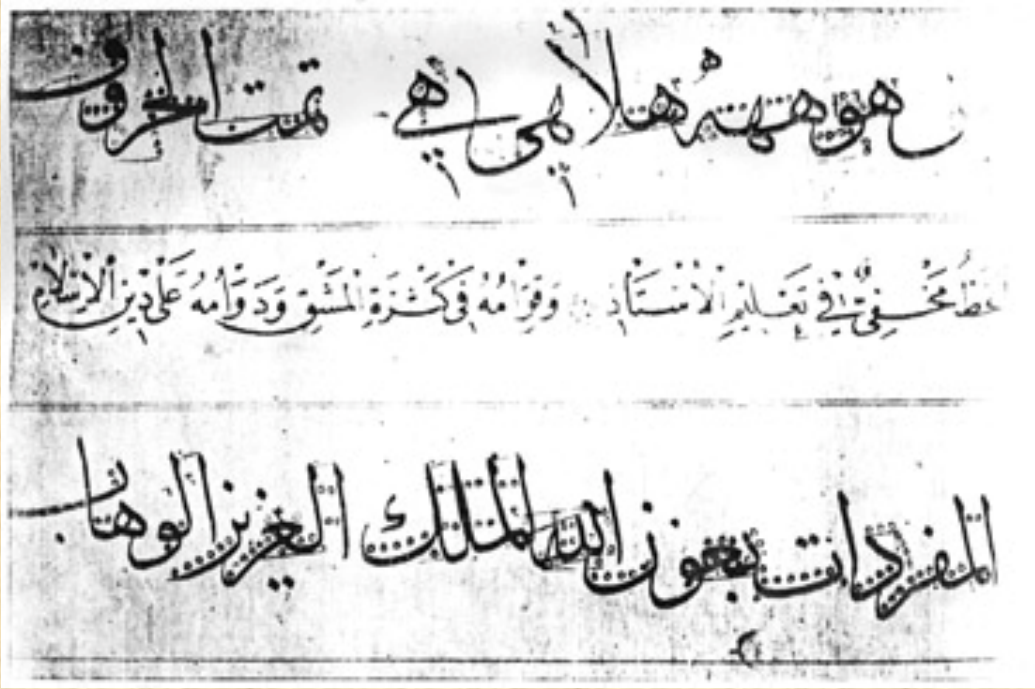 هو هلا هي تمت الحروف
الخَطُّ مَخْفِيٌّ فِي تَعْلِيمِ الْأُسْتَاذِ وَقِوَامُهُ فِي كَثْرَةِ الْمَشْقِ وَدَوَامُهُ عَلَى دِينِ الْإِسْلَامِ
المفردات بعون الله الملك العزيز الوهاب